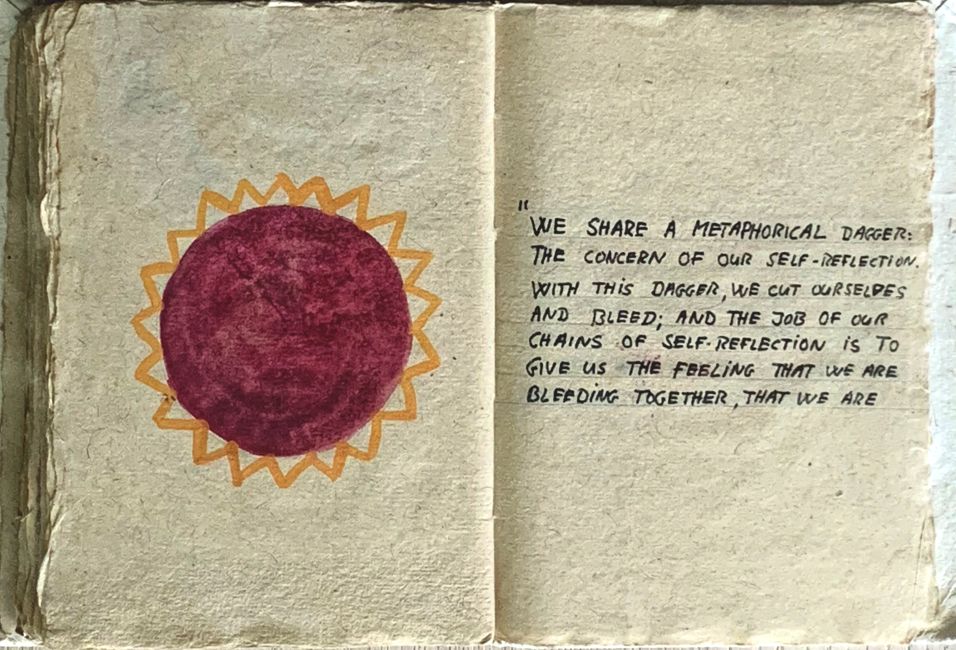 "
WE SHARE A METAPHORICAL DAGGER:
THE CONCERN OF OUR SELF-REFLECTION.
WITH THIS DAGGER, WE CUT OURSELVES
AND BLEED; AND THE JOB OF OUR
CHAINS OF SELF-REFLECTION IS TO
GIVE US THE FEELING THAT WE ARE
BLEEDING TOGETHER, THAT WE ARE